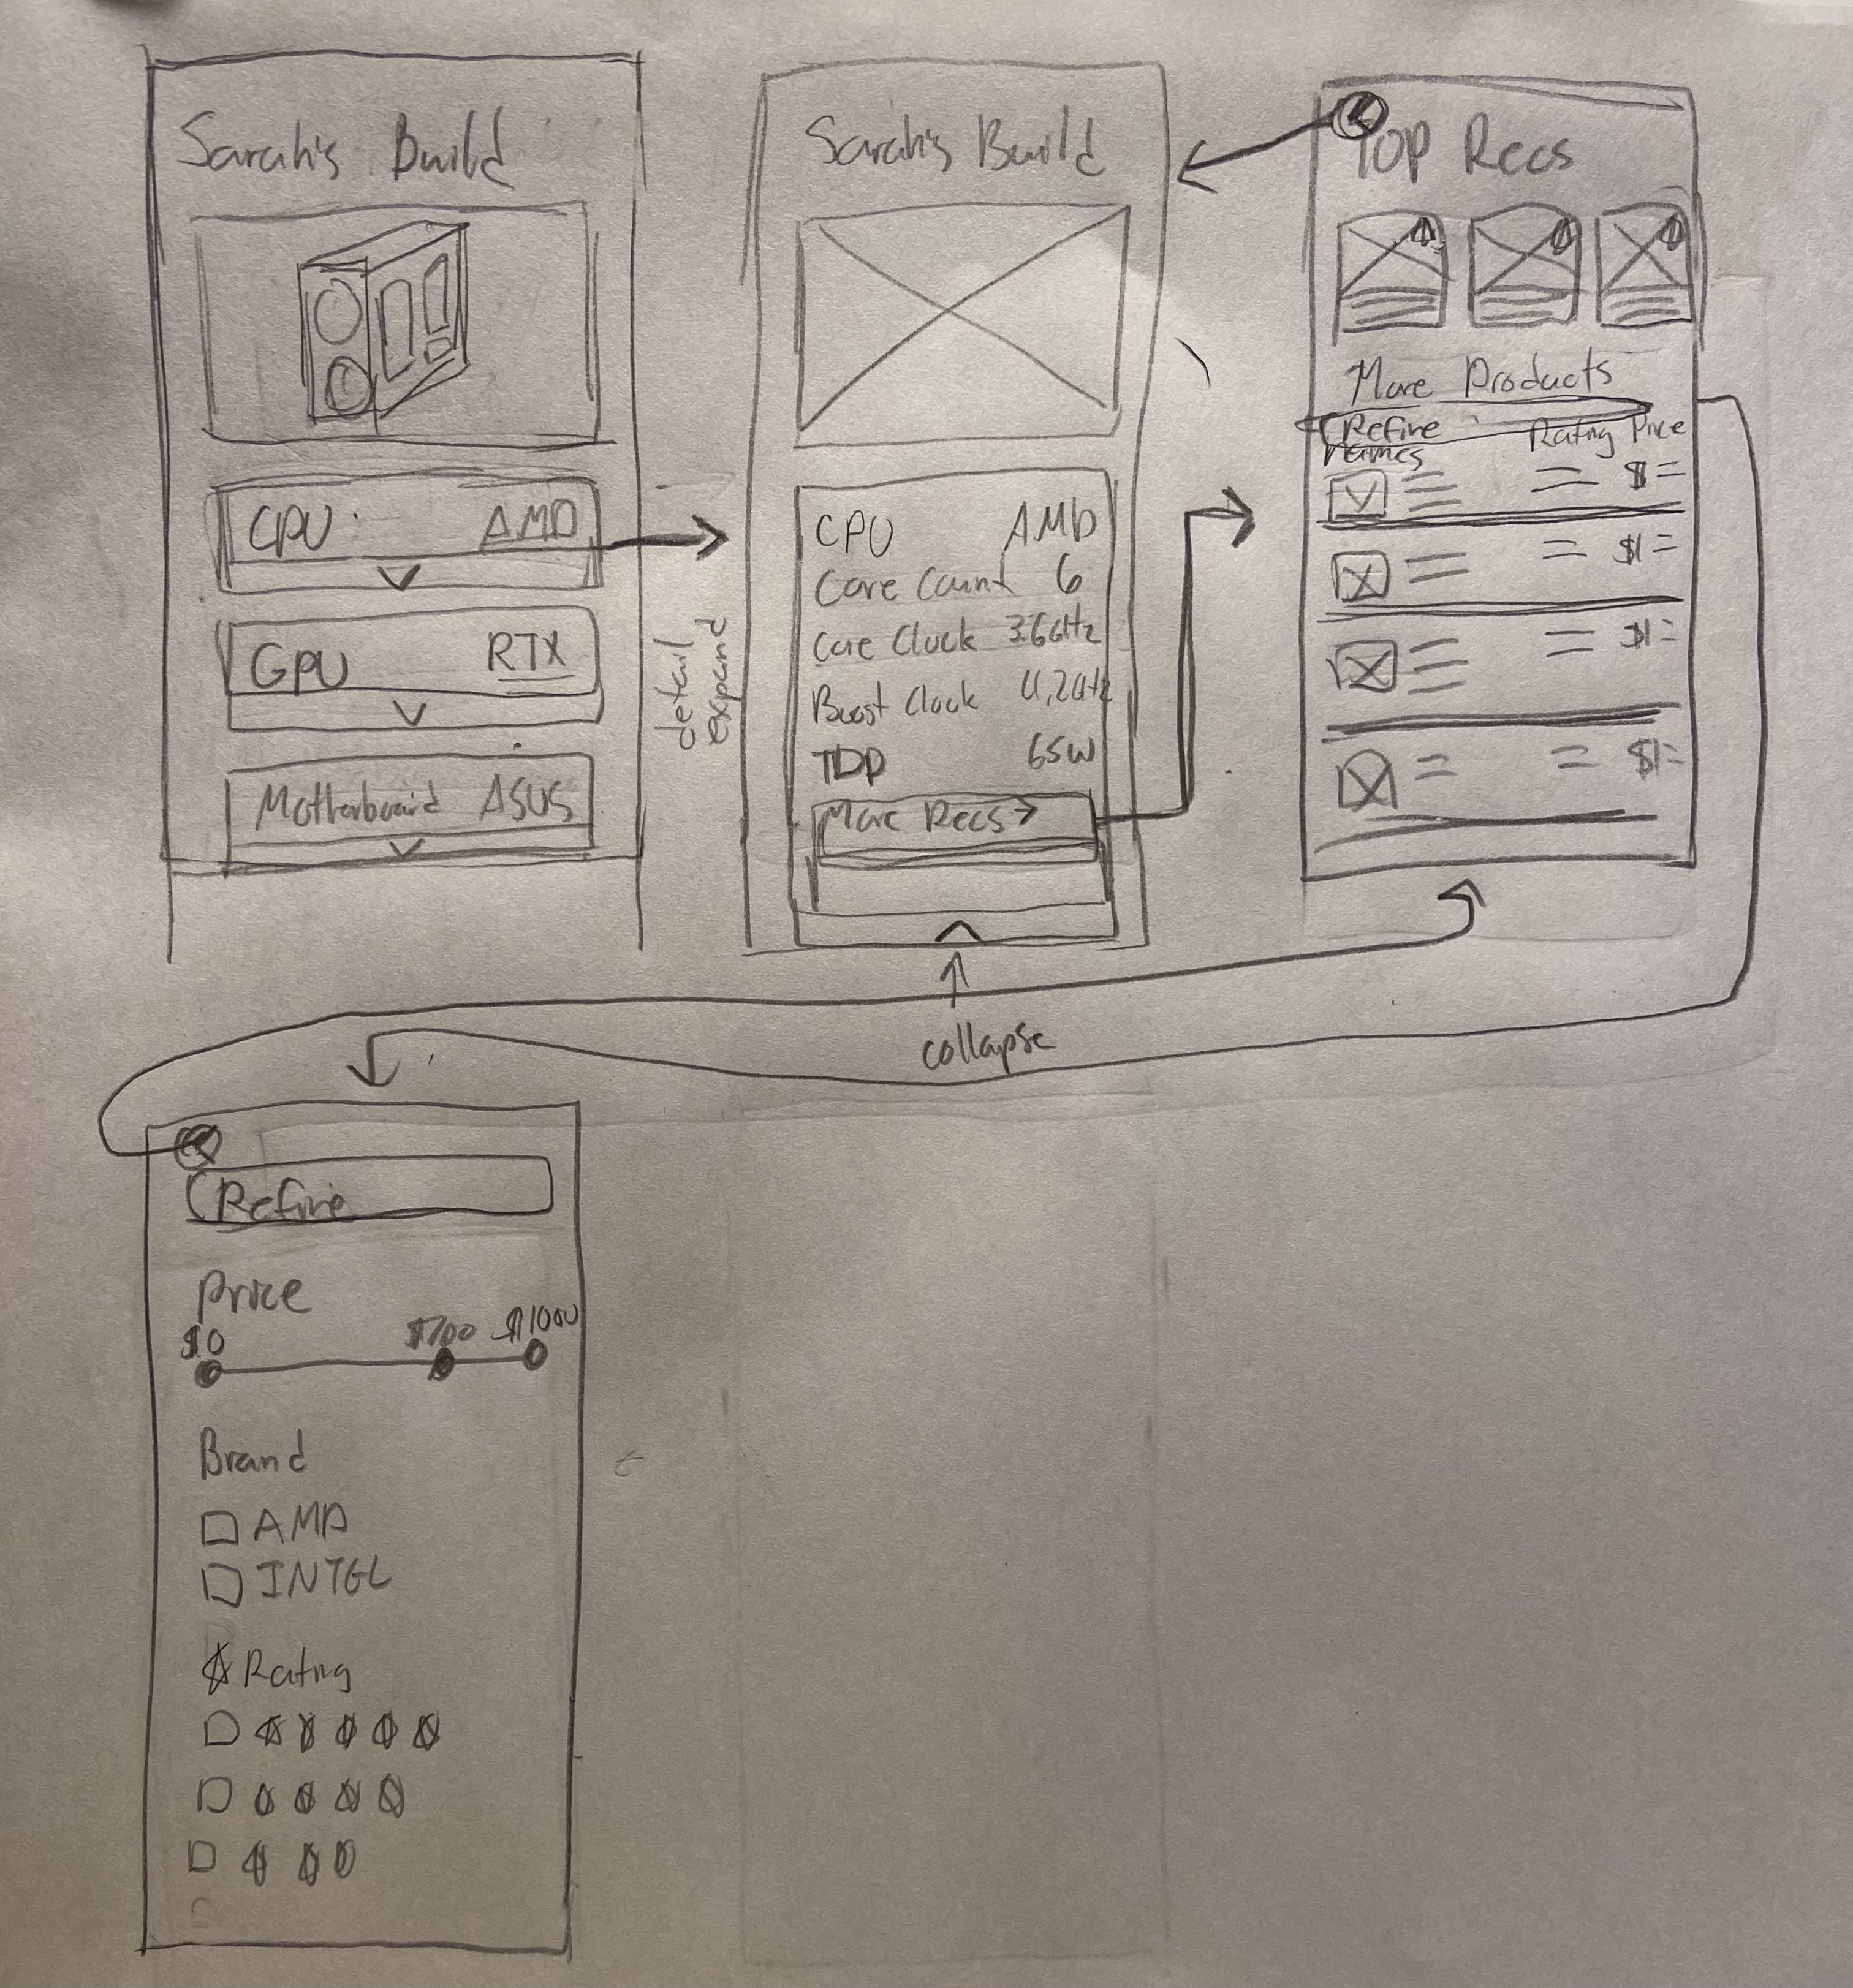 Sarah's Build
CPU: AMD
GPU RTX
Motherboard ASUS
detail
expand
Sarah's Build
CPU AMD
Core Count 6
Core Clock 3.6GHz
Boost Clock 4.2GHz
TDP 65W
More Recs >
collapse
Top Recs
More Products
Refine
Names Rating Price
$
$
$
$
Refine
Price
$0 $700 $1000
Brand
AMD
INTEL
Rating